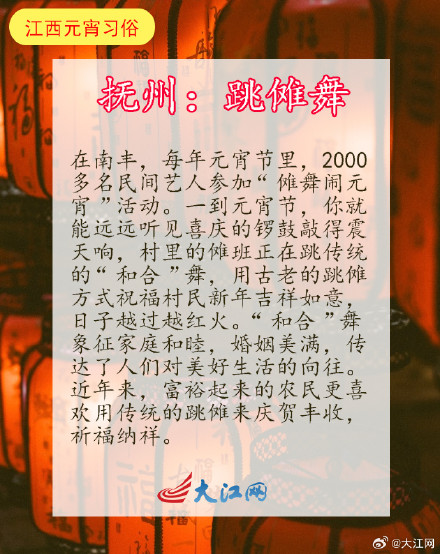 江西元宵习俗
抚州：跳傩舞
在南丰，每年元宵节里，2000
多名民间艺人参加“傩舞闹元
宵”活动。一到元宵节，你就
能远远听见喜庆的锣鼓敲得震
天响，村里的傩班正在跳传统
的“和合”舞，用古老的跳傩
方式祝福村民新年吉祥如意，
日子越过越红火。“和合”舞
象征家庭和睦，婚姻美满，传
达了人们对美好生活的向往。
近年来，富裕起来的农民更喜
欢用传统的跳傩来庆贺丰收，
祈福纳祥。
大江网
@大江网